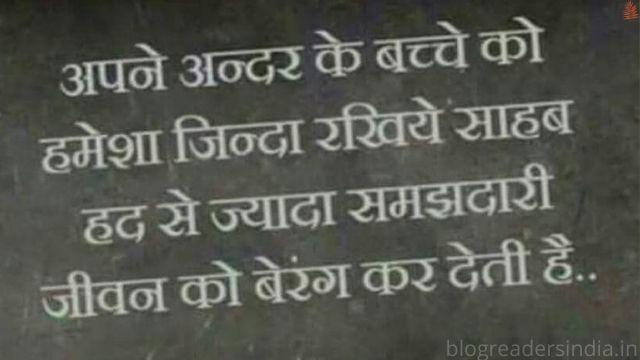 अपने अन्दर के बच्चे को
हमेशा जिन्दा रखिये साहब
हद से ज्यादा समझदारी
जीवन को बेरंग कर देती है..
blogreadersindia.in